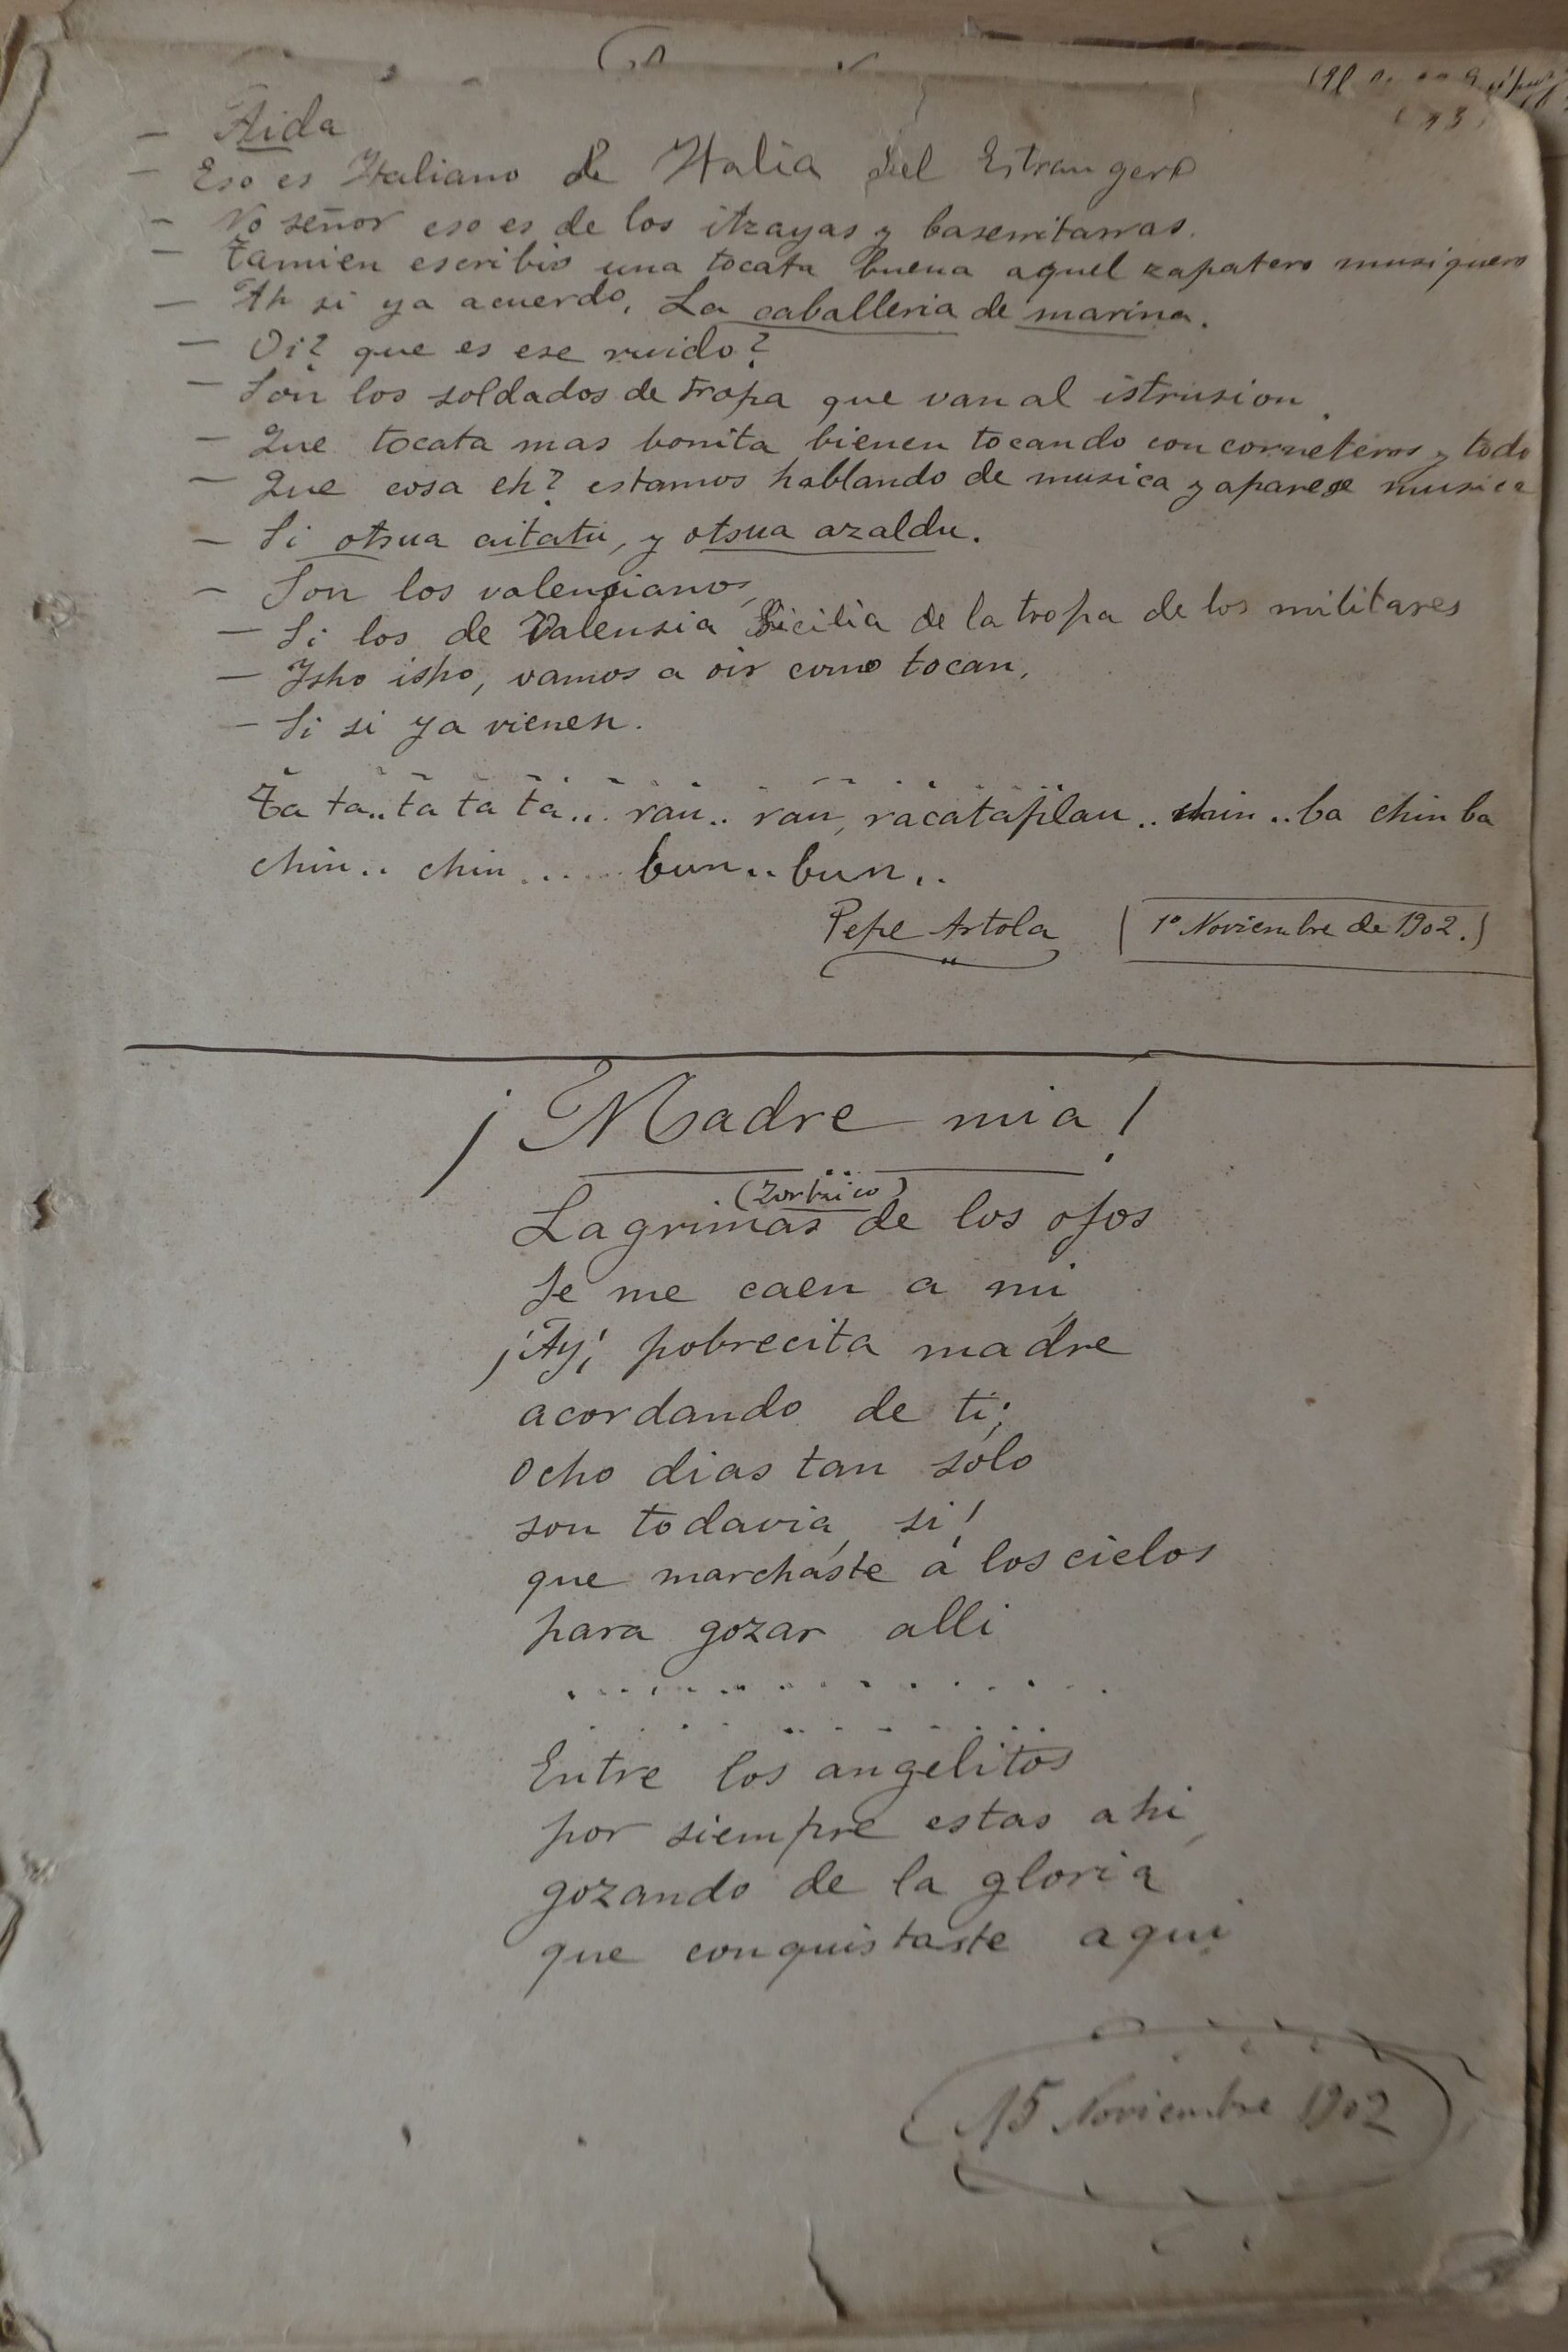 — Aida
— Eso es Italiano de Italia del Estrangero
— No señor eso es de los itzayas y baserritarras.
— Tamien escribio una tocata buena aquel zapatero musiquero
— Ah si ya acuerdo, La caballeria de marina.
— Oi? que es ese ruido?
— Son los soldados de tropa que van al istrusion.
— Que tocata mas bonita bienen tocando con corneteros y todo
— Que cosa eh? estamos hablando de musica y aparese musica
— Si otsua aitatu, y otsua azaldu.
— Son los valencianos,
— Si los de Valensia Sicilia de la tropa de los militares
— Isho isho, vamos a oir como tocan,
— Si si ya vienen.
Ta ta.. ta ta ta... rau.. rau, racatapilau.. chin.. ba chin ba
chin.. chin..... bun.. bun..
Pepe Artola (1º Noviembre de 1902.)
¡Madre mia!
(Zortzico)
Lagrimas de los ojos
Se me caen a mi
¡Ay! pobrecita madre
acordando de ti;
Ocho dias tan sólo
son todavia, si!
que marchaste á los cielos
para gozar alli
Entre los angelitos
por siempre estas ahi,
gozando de la gloria
que conquistaste aqui
15 Noviembre 1902